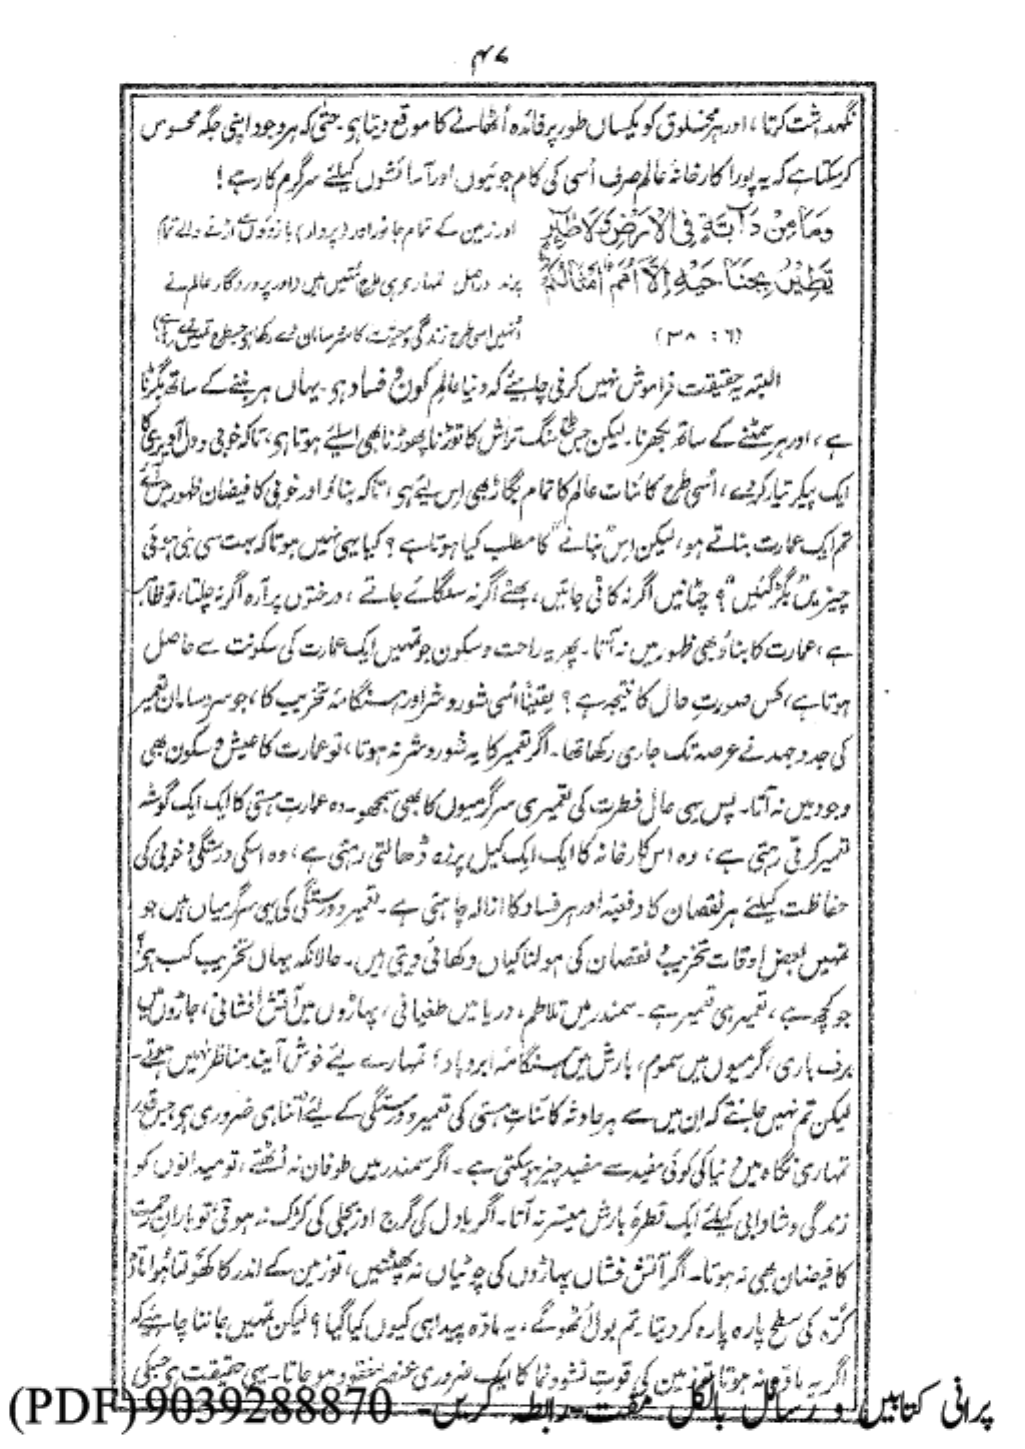 ۴۷
نگہداشت کرتا، اور ہر مخلوق کو یکساں طور پر فائدہ اُٹھانے کا موقع دیتا ہو۔ حتیٰ کہ ہر وجود اپنی جگہ محسوس
کرسکتا ہے کہ یہ پورا کارخانۂ عالم صرف اُسی کی کام جوئیوں اور آسائشوں کیلئے سرگرم کار ہے!
وَمَا مِنْ دَآبَّةٍ فِی الْاَرْضِ وَلَا طٰٓئِرٍ اور زمین کے تمام جانور اور (پردار) بازوؤں سے اڑنے والے تمام
يَّطِيْرُ بِجَنَاحَيْهِ اِلَّآ اُمَمٌ اَمْثَالُكُمْ پرند دراصل تمہاری ہی طرح اُمتیں ہیں (اور پروردگار عالم نے
(۶ : ۳۸) اُنہیں اسی طرح زندگی و معیشت کا سروسامان دے رکھا ہو جس طرح تمہیں دے رکھا ہے)
البتہ یہ حقیقت فراموش نہیں کرنی چاہئے کہ دنیا عالم کون و فساد ہو۔ یہاں ہر بننے کے ساتھ بگڑنا
ہے، اور ہر سمٹنے کے ساتھ بکھرنا۔ لیکن جس طرح سنگ تراش کا توڑنا پھوڑنا بھی اسلئے ہوتا ہو، تاکہ خوبی و دل آویزی کا
ایک پیکر تیار کردے، اُسی طرح کائنات عالم کا تمام بگاڑ بھی اِس لیے ہو، تاکہ بناؤ اور خوبی کا فیضان ظہور میں آئے
تم ایک عمارت بناتے ہو، لیکن اِس "بنانے" کا مطلب کیا ہوتا ہے؟ کیا یہی نہیں ہوتا کہ بہت سی بنی ہوئی
چیزیں "بگڑ گئیں"؟ چٹانیں اگر نہ کاٹی جاتیں، بھٹے اگر نہ سلگائے جاتے، درختوں پر آرہ اگر نہ چلتا، تو ظاہر
ہے، عمارت کا بناؤ بھی ظہور میں نہ آتا۔ پھر یہ راحت و سکون جو تمہیں ایک عمارت کی سکونت سے حاصل
ہوتا ہے، کس صورتِ حال کا نتیجہ ہے؟ یقیناً اُسی شور و شر اور ہنگامۂ تخریب کا، جو سروسامانِ تعمیر
کی جدوجہد نے عرصہ تک جاری رکھا تھا۔ اگر تعمیر کا یہ شور و شر نہ ہوتا، تو عمارت کا عیش و سکون بھی
وجود میں نہ آتا۔ پس یہی حال فطرت کی تعمیری سرگرمیوں کا بھی سمجھو۔ وہ عمارت ہستی کا ایک ایک گوشہ
تعمیر کرتی رہتی ہے، وہ اس کارخانہ کا ایک ایک کیل پرزہ ڈھالتی رہتی ہے، وہ اسکی درستگی و خوبی کی
حفاظت کیلئے ہر نقصان کا دفعیہ اور ہر فساد کا ازالہ چاہتی ہے۔ تعمیر و درستگی کی یہی سرگرمیاں ہیں جو
تمہیں بعض اوقات تخریب و نقصان کی ہولناکیاں دکھائی دیتی ہیں۔ حالانکہ یہاں تخریب کب ہو؟
جو کچھ ہے، تعمیر ہی تعمیر ہے۔ سمندر میں تلاطم، دریا میں طغیانی، پہاڑوں میں آتش افشانی، جاڑوں میں
برف باری، گرمیوں میں سموم، بارش میں ہنگامۂ ابر و باد، تمہارے لیے خوش آیند مناظر نہیں ہوتے۔
لیکن تم نہیں جانتے کہ اِن میں سے ہر حادثہ کائناتِ ہستی کی تعمیر و درستگی کے لیے اُتنا ہی ضروری ہو جس قدر
تمہاری نگاہ میں دنیا کی کوئی مفید سے مفید چیز ہوسکتی ہے۔ اگر سمندر میں طوفان نہ اُٹھتے، تو میدانوں کو
زندگی و شادابی کیلئے ایک قطرۂ بارش میسر نہ آتا۔ اگر بادل کی گرج اور بجلی کی کڑک نہ ہوتی تو بارانِ رحمت
کا فیضان بھی نہ ہوتا۔ اگر آتش فشاں پہاڑوں کی چوٹیاں نہ پھٹتیں، تو زمین کے اندر کا کھولتا ہوا مادّہ
کُرّہ کی سطح پارہ پارہ کر دیتا۔ تم بول اُٹھوگے، یہ مادّہ پیدا ہی کیوں کیا گیا؟ لیکن تمہیں جاننا چاہئے کہ
اگر یہ مادّہ نہ ہوتا تو زمین کی قوتِ نشوونما کا ایک ضروری عنصر مفقود ہو جاتا۔ یہی حقیقت ہو جسکی
پرانی کتابیں و رسائل بالکل مفت۔ رابطہ کریں۔ 9039288870 (PDF)